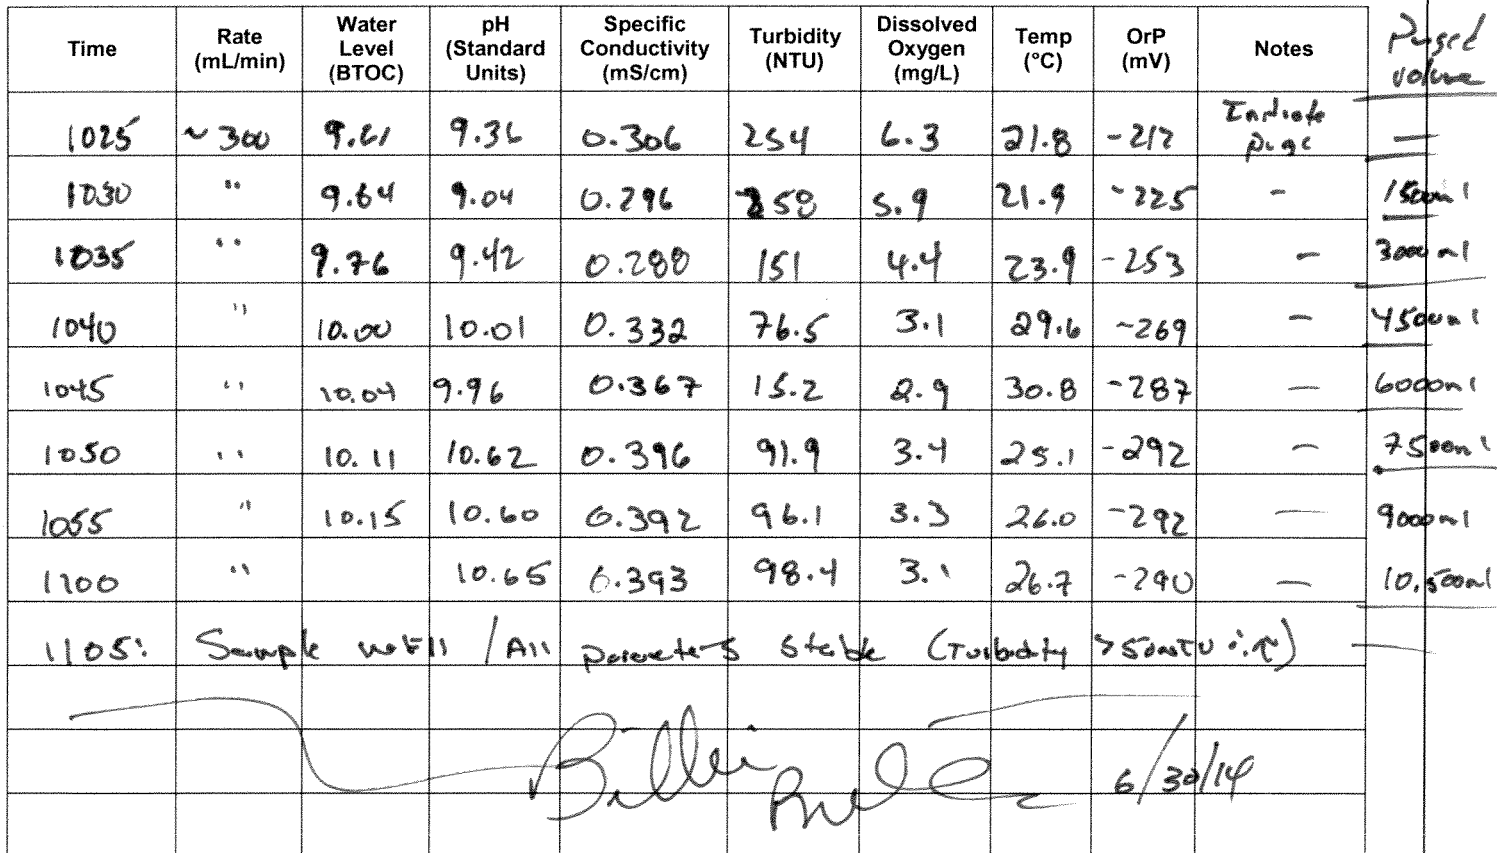 Time Rate (mL/min) Water Level (BTOC) pH (Standard Units) Specific Conductivity (mS/cm) Turbidity (NTU) Dissolved Oxygen (mg/L) Temp (°C) OrP (mV) Notes Purged volume
1025 ~300 9.61 9.36 0.306 254 6.3 21.8 -212 purge —
1030 " 9.64 9.04 0.296 258 5.9 21.9 -225 - 1500ml
1035 " 9.76 9.42 0.288 151 4.4 23.9 -253 - 3000ml
1040 " 10.00 10.01 0.332 76.5 3.1 29.6 -269 - 4500ml
1045 " 10.04 9.96 0.367 15.2 2.9 30.8 -287 — 6000ml
1050 " 10.11 10.62 0.396 91.9 3.4 25.1 -292 — 7500ml
1055 " 10.15 10.60 0.392 96.1 3.3 26.0 -292 — 9000ml
1100 " 10.65 0.393 98.4 3.1 26.7 -290 — 10,500ml
1105: Sample well / All parameters stable (Turbidity >50NTU
6/30/14